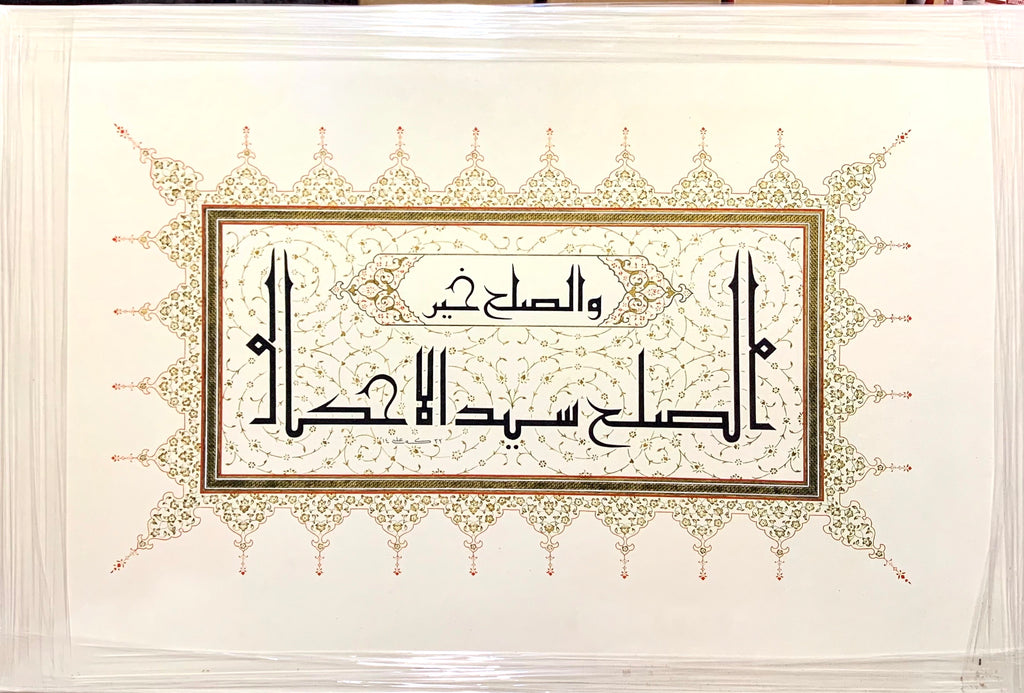 والصلح خير
الصلح سيد الاحكام